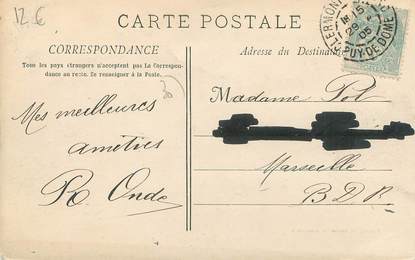 12 €
CARTE POSTALE
CORRESPONDANCE
Tous les pays étrangers n'acceptent pas la Correspon-
dance au recto. Se renseigner à la Poste.
Adresse du Destinataire
CLERMONT
29
05
PUY-DE-DOME
Mes meilleures
amitiés
R. Onde
Madame Pol
Marseille
B.D.R.